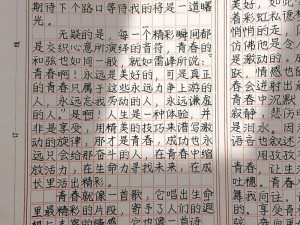 期待下个路口等待我的将是一道曙
光。
无疑的是，每一个精彩瞬间都
是交织心意所演绎的音符，青春的
和弦也如同一般，就如雷锋所说：
青春啊！永远是美好的，可是真正
的青春只属于这些永远力争上游的
人，永远忘我劳动的人，永远谦虚
的人。"是啊！人生是一种体验，并
非是享受，用精美的技巧来谱写激
动的旋律，那才是青春，成功也永
远只会给那奋斗的人，在青春中绽
放活力，在生命力寻找未来，在成
长里活出精彩。
青春就像一首歌，它唱出生命
里最精彩的片段，寄予了人们的遐
着彩虹私德
悄悄的走，
仿佛他是令
的激动的。
跃，情感也
会迸射出最
青春中沉默
是泪水。因
语
用孜孜
让青春
吐穗。青春
舞我向往。
的。享受青